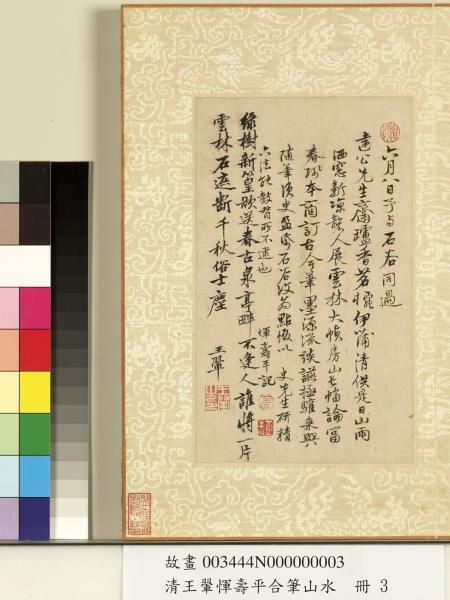 六月八日予與石谷同過
遠公先生齋罏香茗椀伊蒲清供是日山雨
洒窓新涼襲人展雲林大幀房山長幅論富
春獨本商訂古今筆墨源流談讌極驩乘興
隨筆須臾盈紙石谷仍為點綴以 史先生研精
六法能教習所不逮也
惲壽平記
綠樹新篁欲送春古泉亭畔不逢人誰將一片
雲林石遮斷千秋俗士塵
王翬
故畫 003444N000000003
清王翬惲壽平合筆山水 冊 3